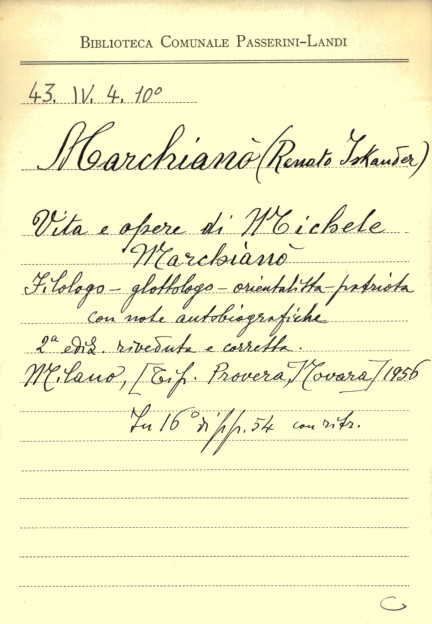 BIBLIOTECA COMUNALE PASSERINI-LANDI
43. IV. 4. 10°
Marchianò (Renato Iskander)
Vita e opere di Michele
Marchianò
Filologo - glottologo - orientalista - patriota
con note autobiografiche
2ª ediz. riveduta e corretta.
Milano, [Tip. Provera, Novara] 1956
In 16° di pp. 54 con ritr.
C